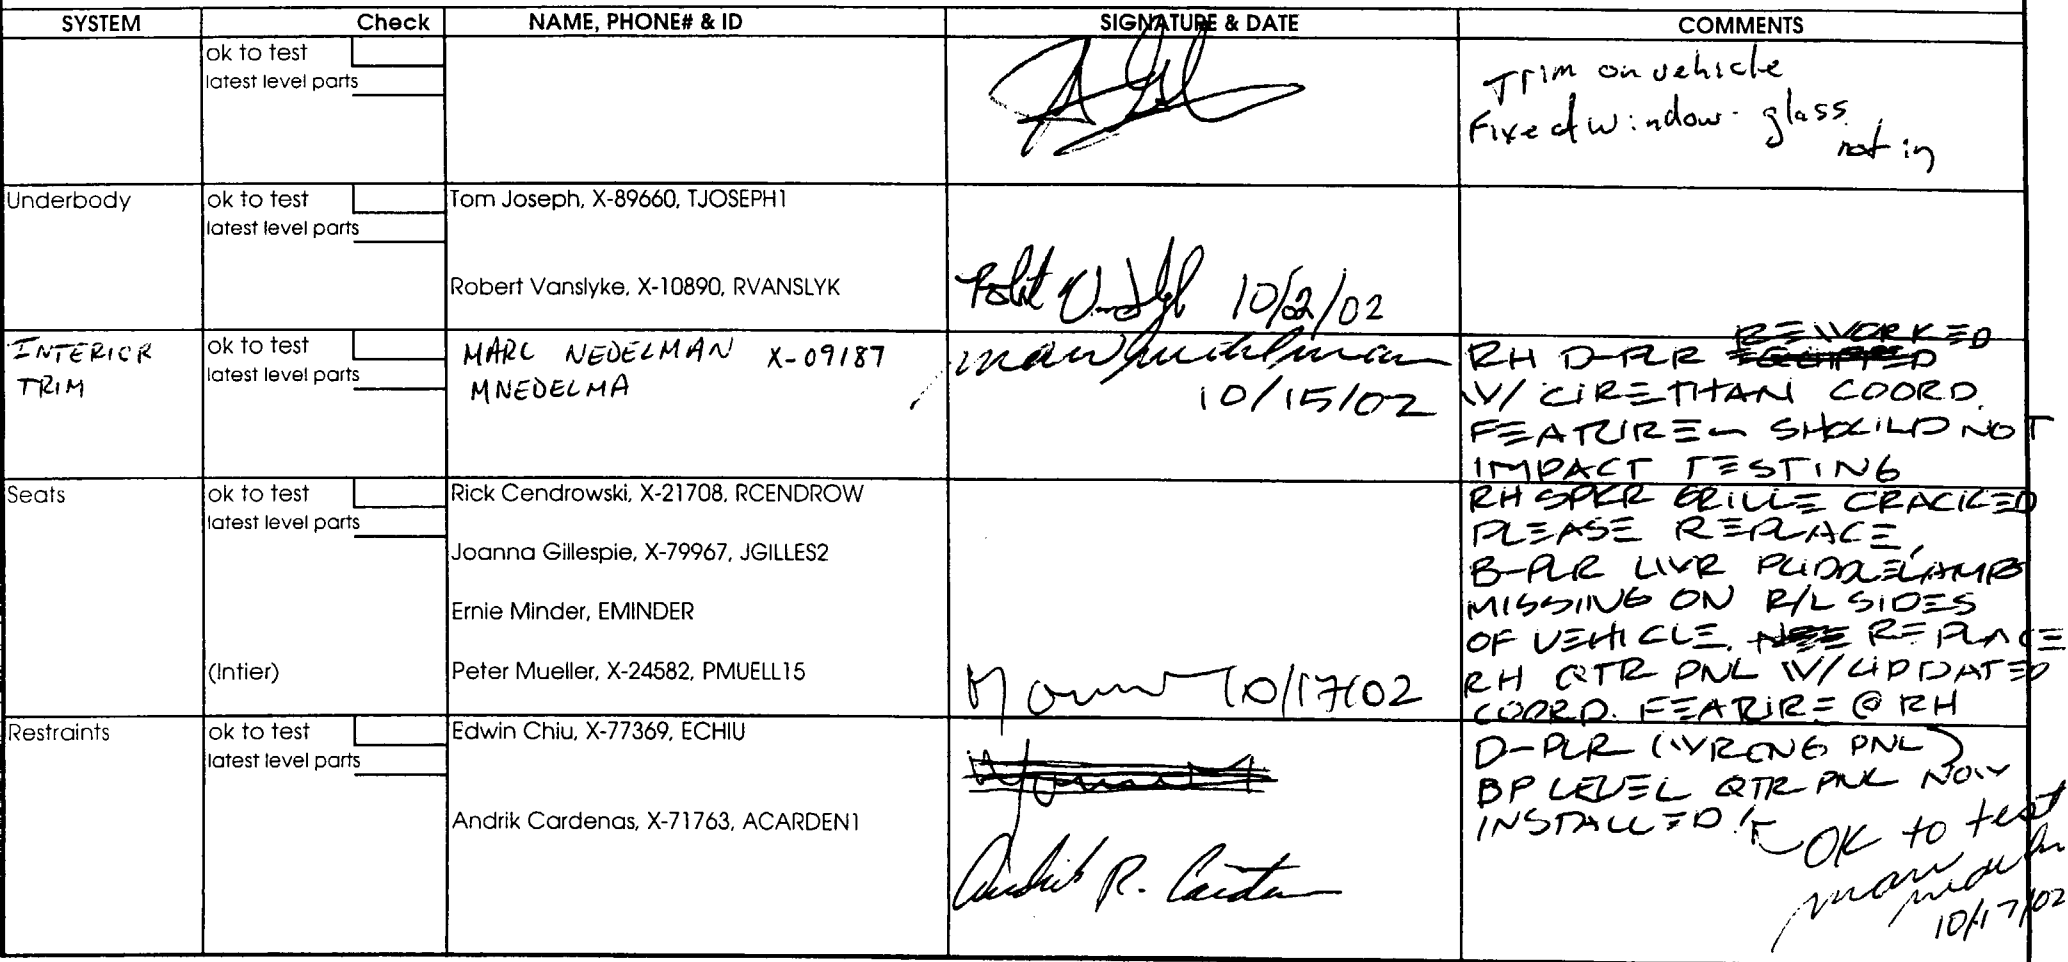 SYSTEM Check NAME, PHONE# & ID SIGNATURE & DATE COMMENTS
ok to test
latest level parts
Trim on vehicle
Fixed window - glass
not in
Underbody
ok to test
latest level parts
Tom Joseph, X-89660, TJOSEPH1
Robert Vanslyke, X-10890, RVANSLYK
10/2/02
INTERIOR
TRIM
ok to test
latest level parts
MARC NEDELMAN X-09187
MNEDELMA
10/15/02
REWORKED
RH D-PLR
W/ COORD.
FEATURE - SHOULD NOT
IMPACT TESTING
Seats
ok to test
latest level parts
Rick Cendrowski, X-21708, RCENDROW
Joanna Gillespie, X-79967, JGILLES2
Ernie Minder, EMINDER
(Intier)
Peter Mueller, X-24582, PMUELL15
10/17/02
RH SPKR GRILLE CRACKED
PLEASE REPLACE,
B-PLR LWR PUDDLELAMPS
MISSING ON R/L SIDES
OF VEHICLE. REPLACE
RH QTR PNL W/ UPDATED
COORD. FEATURE @ RH
D-PLR (WRONG PNL)
BP LEVEL QTR PNL NOW
INSTALLED!
OK to test
10/17/02
Restraints
ok to test
latest level parts
Edwin Chiu, X-77369, ECHIU
Andrik Cardenas, X-71763, ACARDEN1
Andrik R. Cardenas